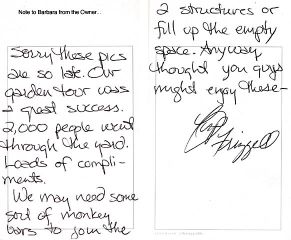 Note to Barbara from the Owner...
Sorry these pics
are so late. Our
garden tour was
a great success.
2,000 people went
through the yard.
Loads of compli-
ments.
We may need some
sort of monkey
bars to join the
2 structures or
fill up the empty
space. Anyway
thought you guys
might enjoy these-
Frizzell